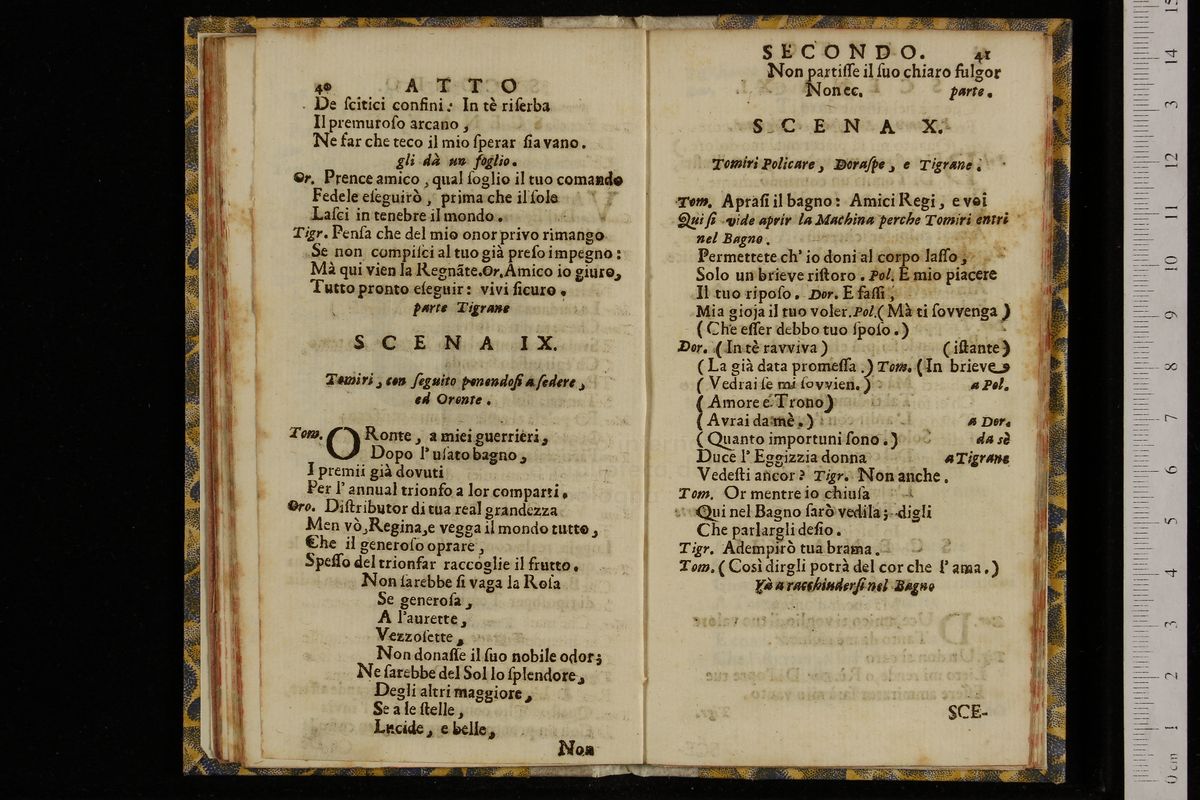 40 ATTO
De ſcitici confini: In tè riſerba
Il premuroſo arcano,
Ne far che teco il mio ſperar ſia vano.
gli dà un foglio.
Or. Prence amico, qual foglio il tuo comando
Fedele eſeguirò, prima che il ſole
Laſci in tenebre il mondo.
Tigr. Penſa che del mio onor privo rimango
Se non compiſci al tuo già preſo impegno:
Mà qui vien la Regnãte. Or. Amico io giuro,
Tutto pronto eſeguir: vivi ſicuro.
parte Tigrane
SCENA IX.
Tomiri, con ſeguito ponendoſi a ſedere,
ed Oronte.
Tom. ORonte, a miei guerrieri,
Dopo l' uſato bagno,
I premii già dovuti
Per l' annual trionfo a lor comparti.
Oro. Diſtributor di tua real grandezza
Men vò, Regina, e vegga il mondo tutto,
Che il generoſo oprare,
Speſſo del trionfar raccoglie il frutto.
Non ſarebbe ſi vaga la Roſa
Se generoſa,
A l'aurette,
Vezzoſette,
Non donaſſe il ſuo nobile odor;
Ne ſarebbe del Sol lo ſplendore,
Degli altri maggiore,
Se a le ſtelle,
Lucide, e belle,
Non
SECONDO. 41
Non partiſſe il ſuo chiaro fulgor
Non ec. parte.
SCENA X.
Tomiri Policare, Doraſpe, e Tigrane.
Tom. Apraſi il bagno: Amici Regi, e voi
Qui ſi vide aprir la Machina perche Tomiri entri
nel Bagno.
Permettete ch' io doni al corpo laſſo,
Solo un brieve riſtoro. Pol. E mio piacere
Il tuo ripoſo. Dor. E faſſi,
Mia gioja il tuo voler. Pol. (Mà ti ſovvenga)
(Che eſſer debbo tuo ſpoſo.)
Dor. (In tè ravviva) (iſtante)
(La già data promeſſa.) Tom. (In brieve
(Vedrai ſe mi ſovvien.) a Pol.
(Amore e Trono)
(Avrai da mè.) a Dor.
(Quanto importuni ſono.) da sè
Duce l' Eggizzia donna a Tigrane
Vedeſti ancor? Tigr. Non anche.
Tom. Or mentre io chiuſa
Qui nel Bagno ſarò vedila; digli
Che parlargli deſio.
Tigr. Adempirò tua brama.
Tom. (Così dirgli potrà del cor che l' ama.)
Và a racchiuderſi nel Bagno
SCE-
0 cm 1 2 3 4 5 6 7 8 9 10 11 12 13 14 15